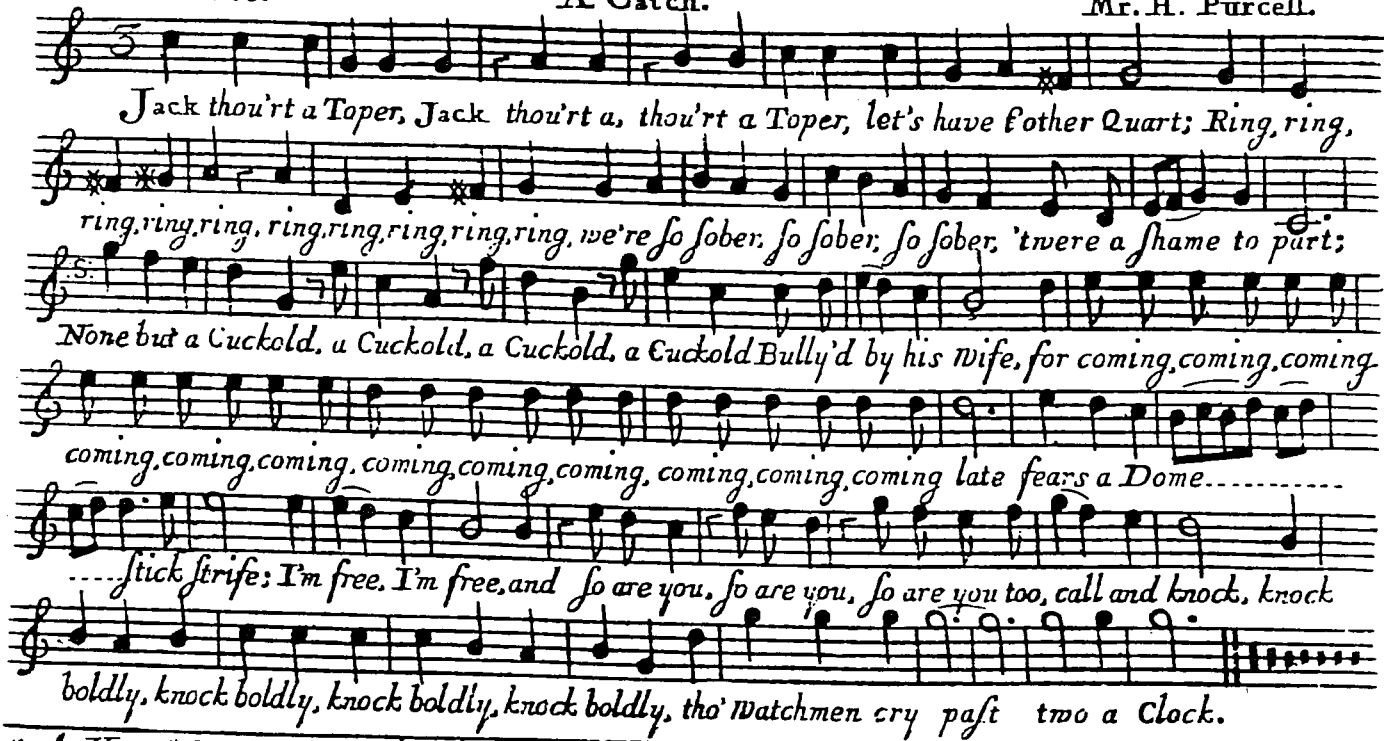 A Catch. Mr. H. Purcell.
Jack thou'rt a Toper, Jack thou'rt a, thou'rt a Toper, let's have t'other Quart; Ring, ring,
ring, ring, ring, ring, ring, ring, ring, ring, we're ſo ſober, ſo ſober, ſo ſober, 'twere a ſhame to part;
None but a Cuckold, a Cuckold, a Cuckold, a Cuckold Bully'd by his Wife, for coming, coming, coming
coming, coming, coming, coming, coming, coming, coming, coming, coming late fears a Dome............
.....ſtick ſtrife; I'm free, I'm free, and ſo are you, ſo are you, ſo are you too, call and knock, knock
boldly, knock boldly, knock boldly, knock boldly, tho' Watchmen cry paſt two a Clock.